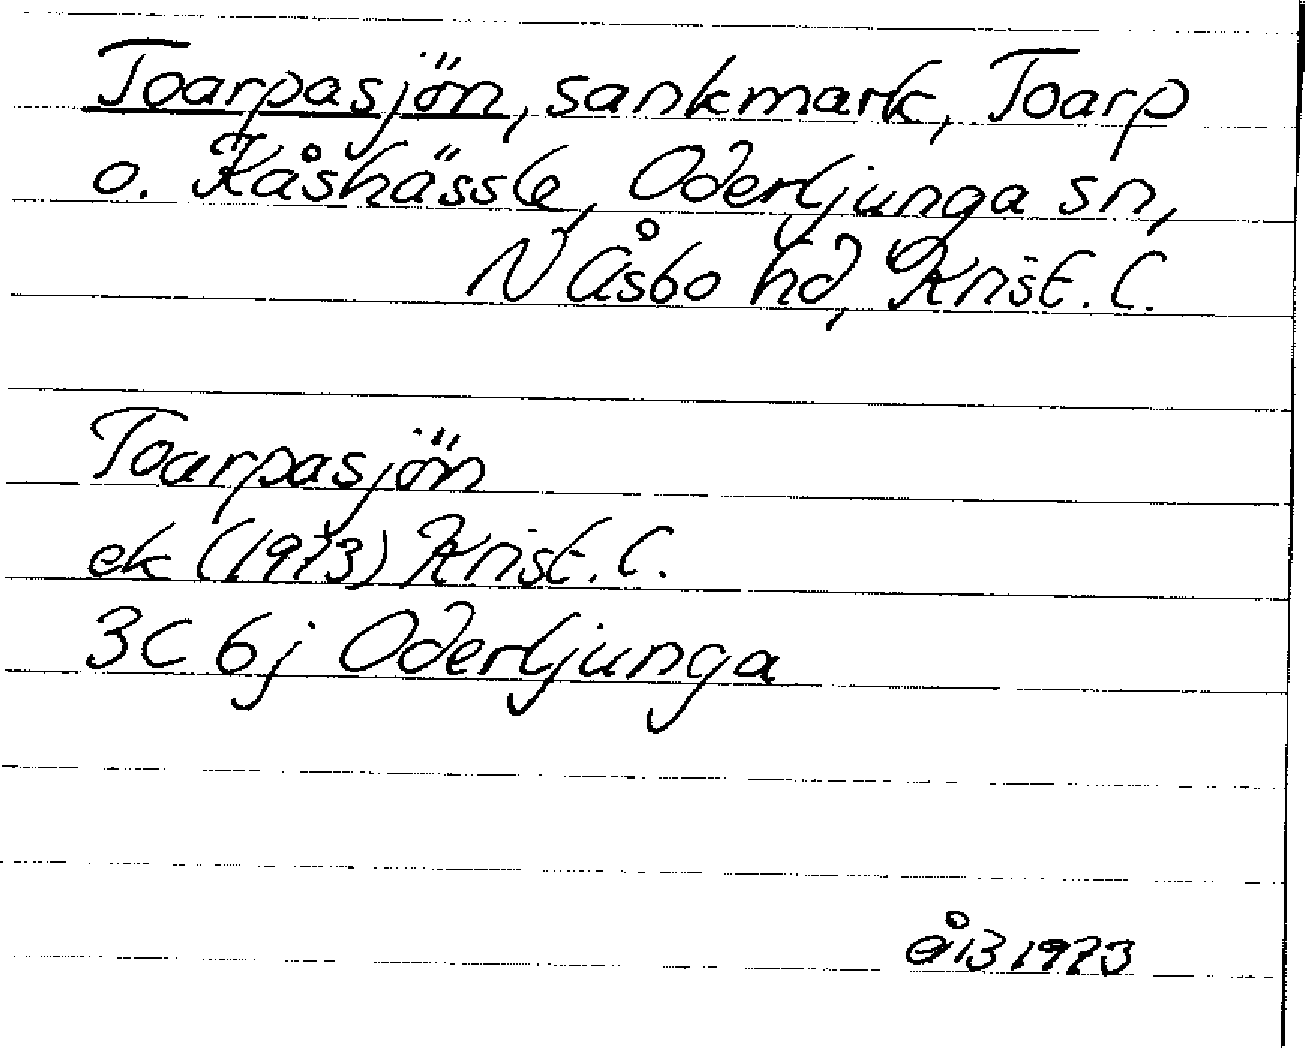 Toarpasjön, sankmark, Toarp
o. Kåshässle, Oderljunga sn,
N Åsbo hd, Krist. l.
Toarpasjön
ek (1973) Krist. l.
3C 6j Oderljunga
åB 1973